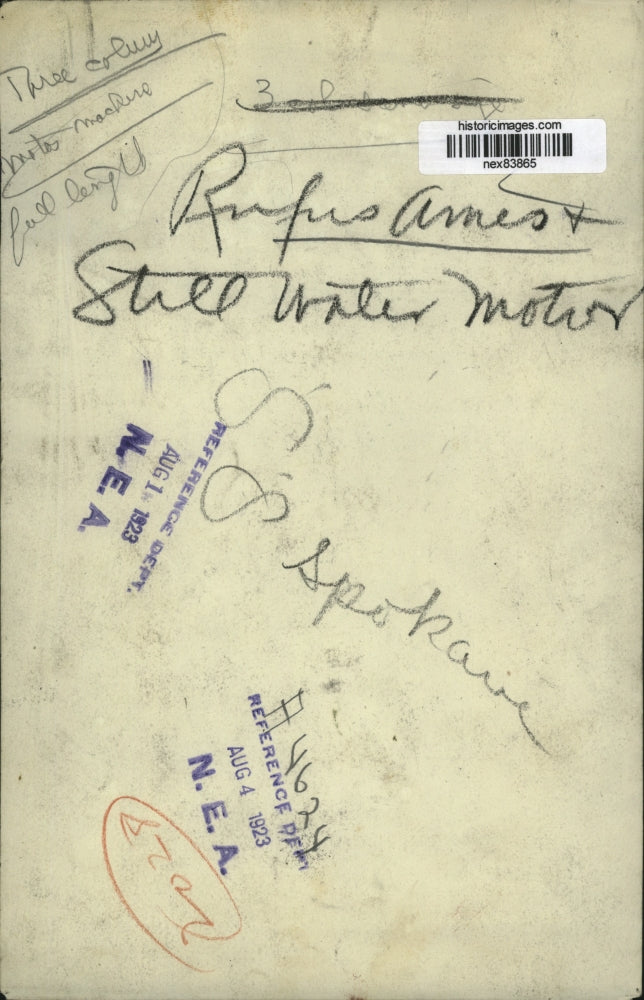 Three column
motor machine
full length
historicimages.com
nex83865
Rufus Ames &
Still Water Motor
REFERENCE DEPT.
AUG 1 1923
N. E. A.
Spokane
REFERENCE DEPT
AUG 4 1923
N. E. A.